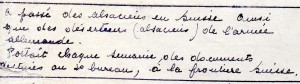 a passé des alsaciens en suisse ainsi
que des déserteurs (alsaciens) de l'armée
allemande.
Portait chaque semaine des documents
au 2e bureau, à la frontière suisse